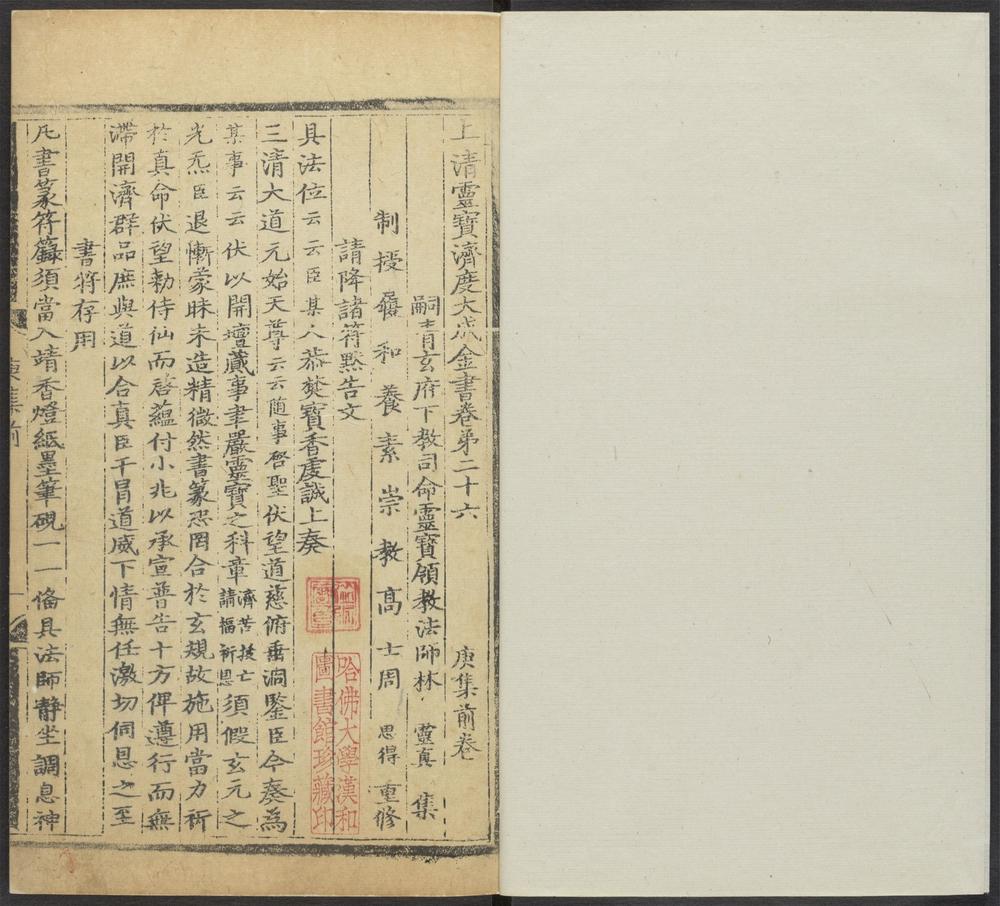 上清靈寶濟度大成金書卷第二十六 庚集前卷
嗣青玄府下教司命靈寶領教法師林 靈真 集
制授履和養素崇教高士周 思得 重修
請降諸符默告文
具法位云云臣某人恭焚寶香虔誠上奏
三清大道元始天尊云云隨事啓聖伏望道慈俯垂洞鑒臣今奏為
某事云云伏以開壇蕆事聿嚴靈寶之科章濟苦拔亡請福祈恩須假玄元之
光炁臣退慚蒙昧未造精微然書篆恐罔合於玄規故施用當力祈
於真命伏望勑侍仙而啓蘊付小兆以承宣普告十方俾遵行而無
滯開濟群品庶與道以合真臣干冒道威下情無任激切伺恩之至
書符存用
凡書篆符籙須當入靖香燈紙墨筆硯一一備具法師靜坐調息神
庚集前
哈佛大學漢和
圖書館珍藏印